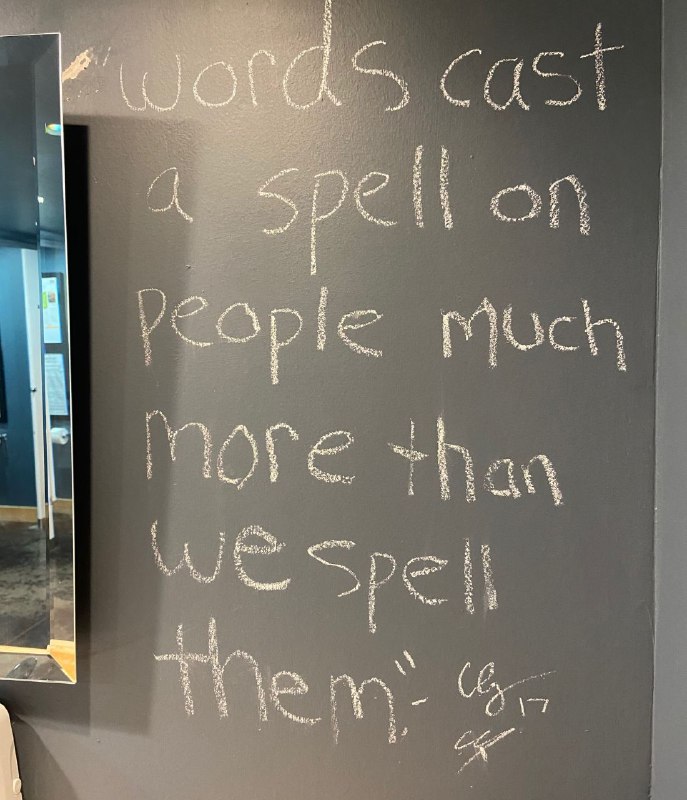 "words cast
a spell on
people much
more than
we spell
them."-
17